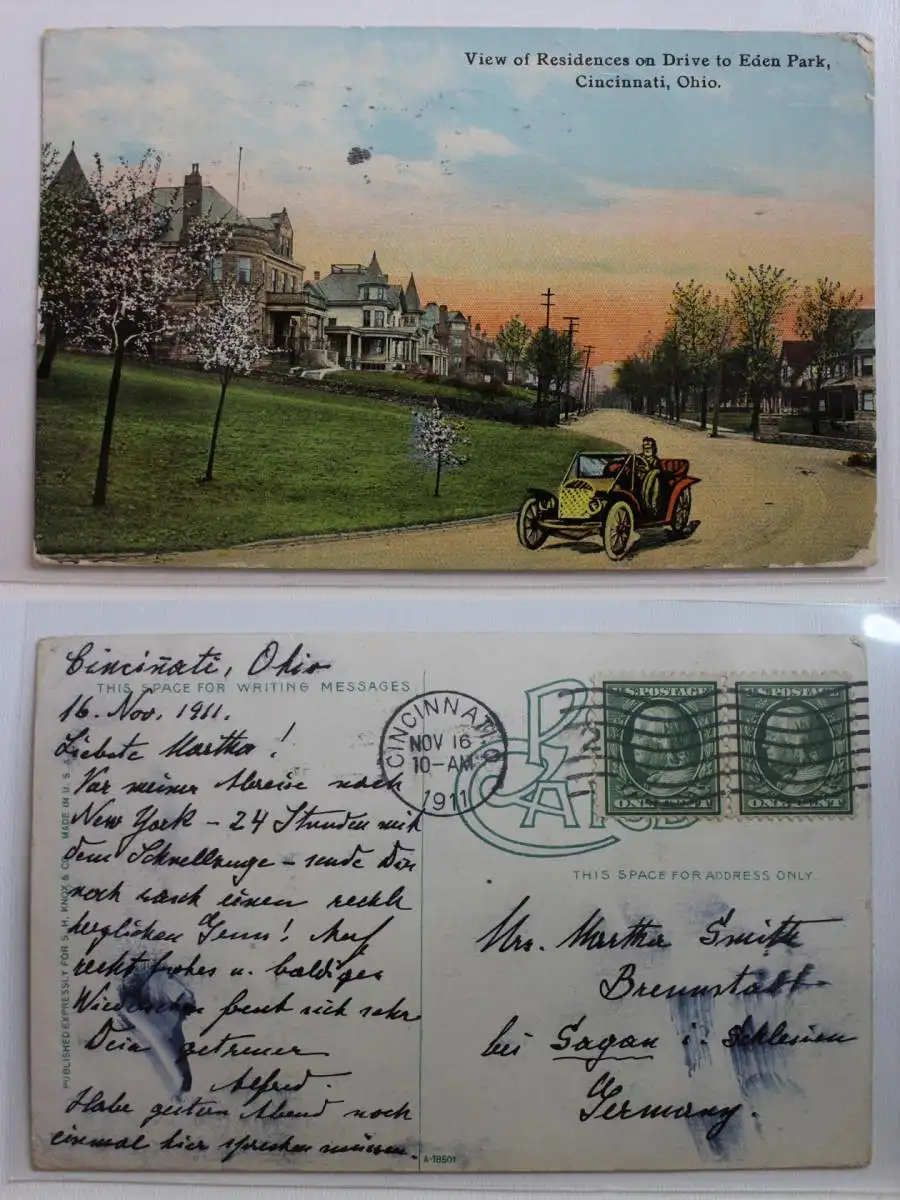 View of Residences on Drive to Eden Park,
Cincinnati, Ohio.
Cincinnati, Ohio
THIS SPACE FOR WRITING MESSAGES
16. Nov. 1911.
Liebste Martha!
Vor meiner Abreise nach
New York - 24 Stunden mit
dem Schnellzuge - sende Dir
noch rasch einen recht
herzlichen Gruss! Auf
recht frohes u. baldiges
Wiedersehen freut sich sehr
Dein getreuer
Alfred.
Habe gestern Abend noch
einmal hier sprechen müssen.
PUBLISHED EXPRESSLY FOR S. H. KNOX & CO. MADE IN U.S.A.
A-18501
CINCINNATI, O.
NOV 16
10-AM
1911
POST CARD
U.S. POSTAGE
ONE CENT 1
U.S. POSTAGE
ONE CENT 1
THIS SPACE FOR ADDRESS ONLY.
Mrs. Martha Smith
Brennstadt
bei Sagan i. Schlesien
Germany.